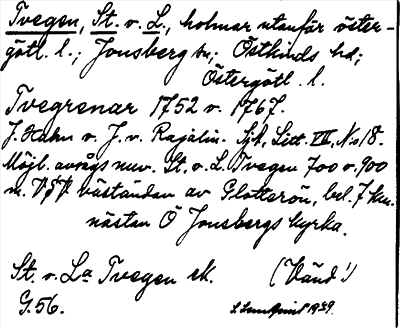 Tvegen, St. o. L., holmar utanför öster-
götl. l.; Jonsberg sn; Östkinds hd;
Östergötl. l.
Tvegrenar 1752 o. 1767.
J. Hahn o. J. v. Rajalin. Sjk, Litt. VII, No 18.
Möjl. avsågs nuv. St. o. L. Tvegen 700 o. 900
m. VSV väständan av Glotterön, bel. 7 km.
nästan Ö Jonsbergs kyrka.
St. o. La Tvegen ek. (Vänd!)
G. 56. 1939.